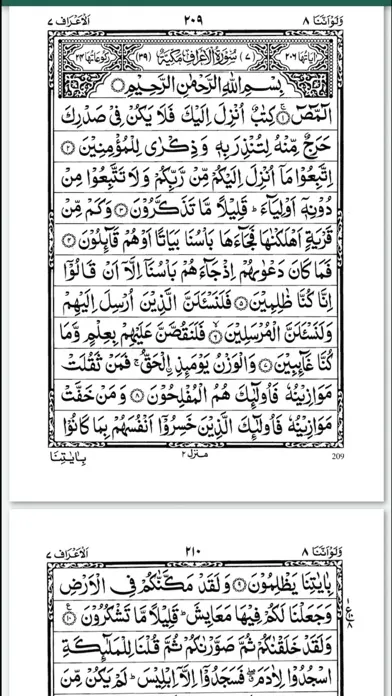 وَلَوْاَنَّنَا ٨ ٢٠٩ اَلْاَعْرَاف ٧
اٰيَاتُهَا ٢٠٦ (٧) سُوْرَةُ الْاَعْرَافِ مَكِّيَّةٌ (٣٩) رُكُوْعَاتُهَا ٢٤
بِسْمِ اللّٰهِ الرَّحْمٰنِ الرَّحِيْمِ
الٓمّٓصٓ ۚ ١ كِتٰبٌ اُنْزِلَ اِلَيْكَ فَلَا يَكُنْ فِيْ صَدْرِكَ
حَرَجٌ مِّنْهُ لِتُنْذِرَ بِهٖ وَ ذِكْرٰى لِلْمُؤْمِنِيْنَ ٢
اِتَّبِعُوْا مَاۤ اُنْزِلَ اِلَيْكُمْ مِّنْ رَّبِّكُمْ وَلَا تَتَّبِعُوْا مِنْ
دُوْنِهٖۤ اَوْلِيَآءَ ؕ قَلِيْلًا مَّا تَذَكَّرُوْنَ ٣ وَكَمْ مِّنْ
قَرْيَةٍ اَهْلَكْنٰهَا فَجَآءَهَا بَاْسُنَا بَيَاتًا اَوْهُمْ قَآىِٕلُوْنَ ٤
فَمَا كَانَ دَعْوٰىهُمْ اِذْجَآءَهُمْ بَاْسُنَاۤ اِلَّاۤ اَنْ قَالُوْۤا
اِنَّا كُنَّا ظٰلِمِيْنَ ٥ فَلَنَسْـَٔلَنَّ الَّذِيْنَ اُرْسِلَ اِلَيْهِمْ
وَلَنَسْـَٔلَنَّ الْمُرْسَلِيْنَ ٦ فَلَنَقُصَّنَّ عَلَيْهِمْ بِعِلْمٍ وَّمَا
كُنَّا غَآىِٕبِيْنَ ٧ وَالْوَزْنُ يَوْمَىِٕذِ اِۨلْحَقُّ ۚ فَمَنْ ثَقُلَتْ
مَوَازِيْنُهٗ فَاُولٰٓىِٕكَ هُمُ الْمُفْلِحُوْنَ ٨ وَ مَنْ خَفَّتْ
مَوَازِيْنُهٗ فَاُولٰٓىِٕكَ الَّذِيْنَ خَسِرُوْۤا اَنْفُسَهُمْ بِمَا كَانُوْا
بِاٰيٰتِنَا منزل ٢ 209
وَلَوْاَنَّنَا ٨ ٢١٠ اَلْاَعْرَاف ٧
بِاٰيٰتِنَا يَظْلِمُوْنَ ٩ وَلَقَدْ مَكَّنّٰكُمْ فِي الْاَرْضِ
وَجَعَلْنَا لَكُمْ فِيْهَا مَعَايِشَ ؕ قَلِيْلًا مَّا تَشْكُرُوْنَ ١٠
وَلَقَدْ خَلَقْنٰكُمْ ثُمَّ صَوَّرْنٰكُمْ ثُمَّ قُلْنَا لِلْمَلٰٓىِٕكَةِ
اسْجُدُوْا لِاٰدَمَ ۖ فَسَجَدُوْۤا اِلَّاۤ اِبْلِيْسَ ؕ لَمْ يَكُنْ مِّنَ